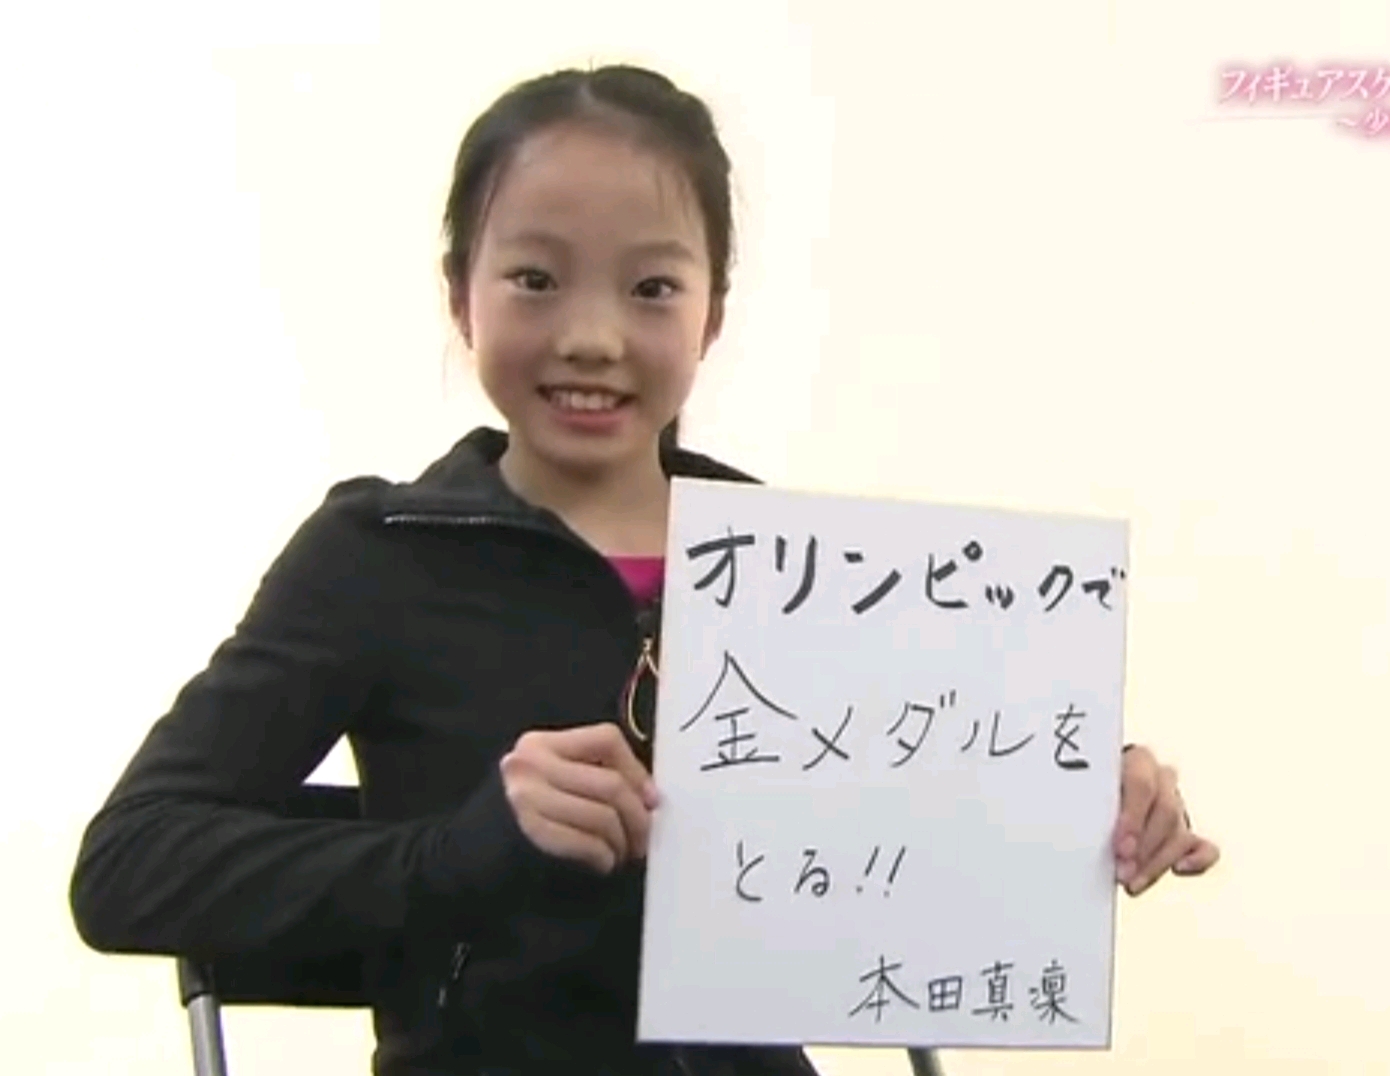 フィギュアスケ
～少
オリンピックで
金メダルを
とる!!
本田真凜